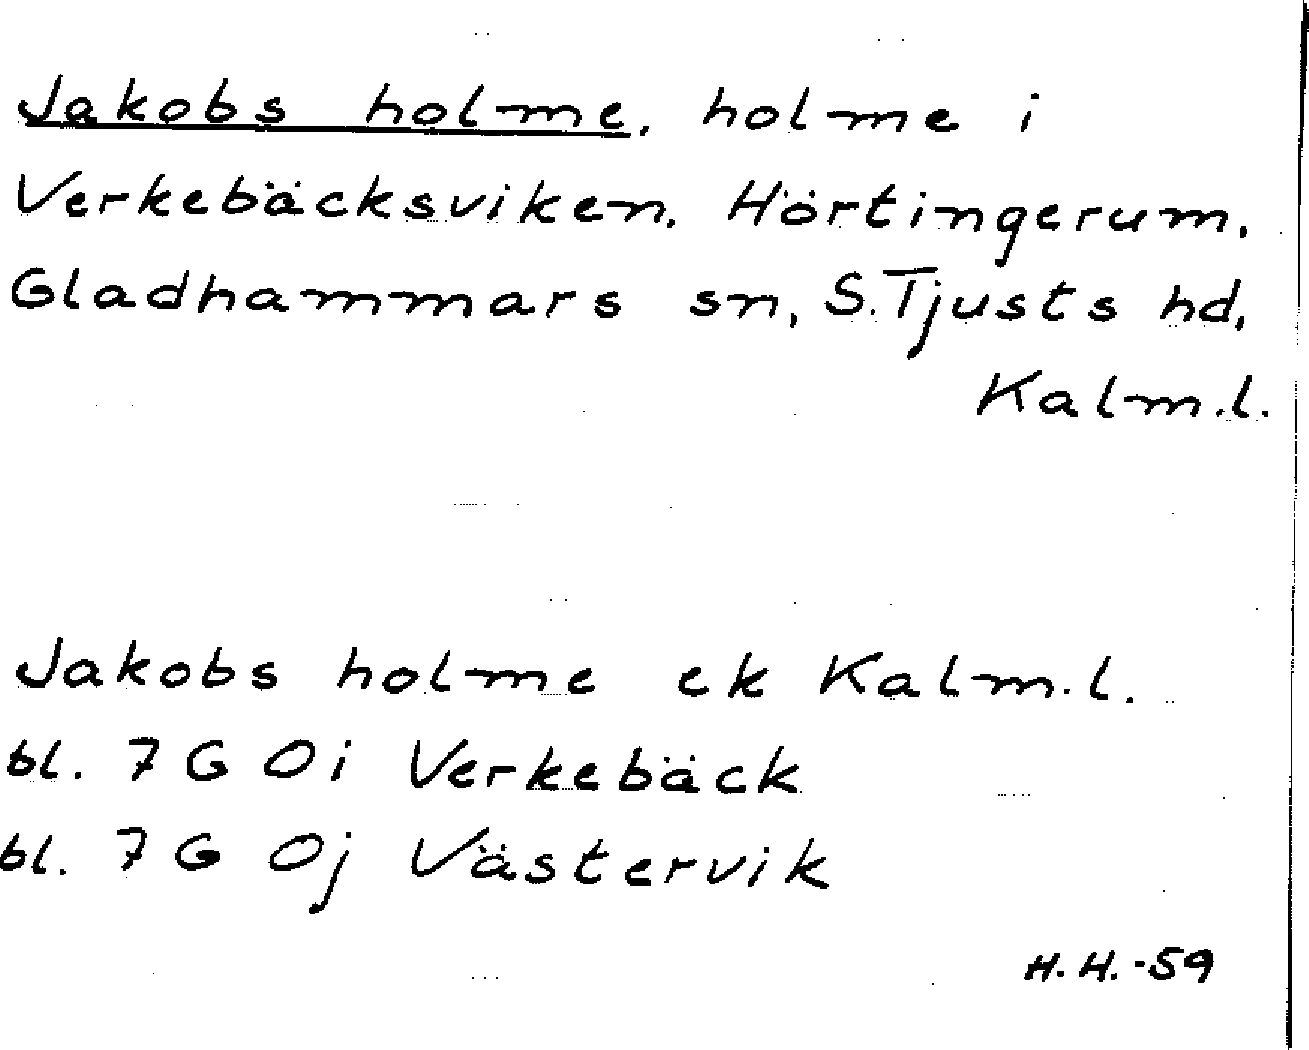 Jakobs holme, holme i
Verkebäcksviken. Hörtingerum,
Gladhammars sn, S. Tjusts hd,
Kalm.l.
Jakobs holme ek Kalm.l.
bl. 7 G 0i Verkebäck
bl. 7 G 0j Västervik
H.H.-59